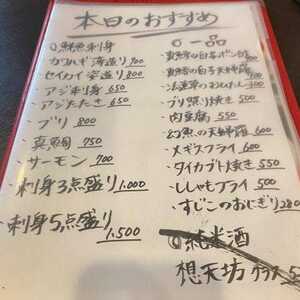 本日のおすすめ
◎鮮魚刺身
・カワハギ姿造り 900
・セイカイ姿造り 800
・アジ刺身 650
・アジたたき 650
・ブリ 800
・真鯛 750
・サーモン 700
・刺身3点盛り 1.000
・刺身5点盛り 1.500
◎一品
・真鱈の白子ポン酢
・真鱈の白子天ぷら
・ブリ照り焼き 500
・肉豆腐 550
・幻魚の天ぷら 600
・メギスフライ 600
・タイカブト焼き 550
・ししゃもフライ 500
・すじこのおにぎり 280
◎純米酒
想天坊 グラス